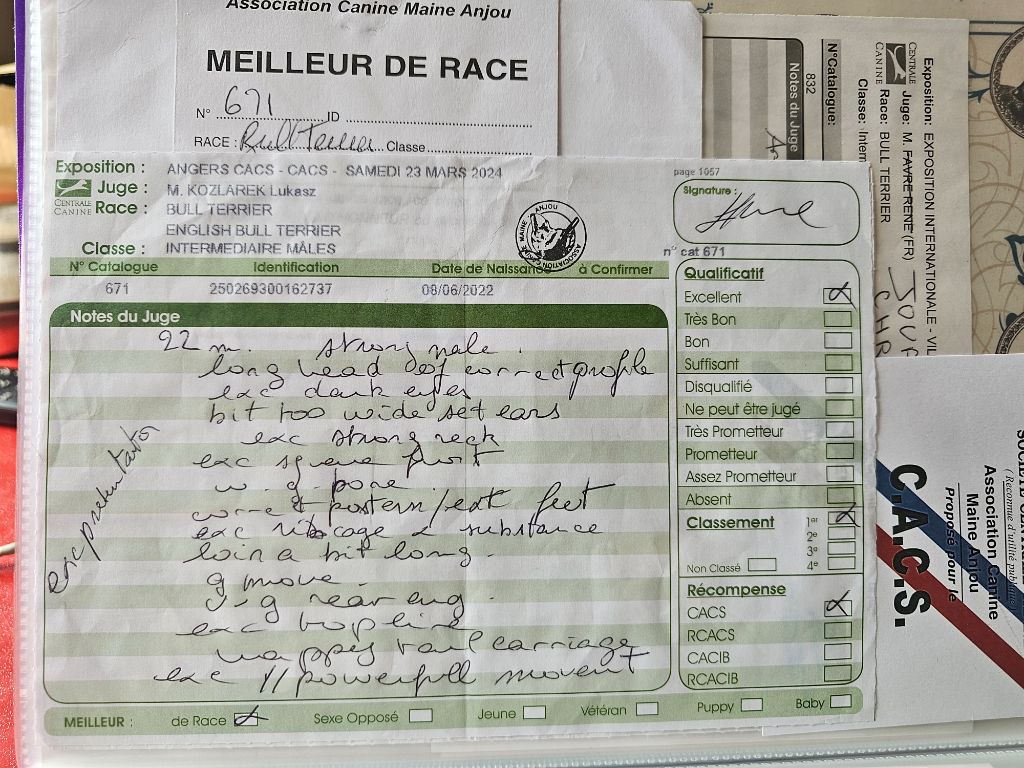 Association Canine Maine Anjou
MEILLEUR DE RACE
N° 671 ID
RACE : Bull Terrier Classe
Exposition : ANGERS CACS - CACS - SAMEDI 23 MARS 2024
Juge : M. KOZLAREK Lukasz
CENTRALE CANINE
Race : BULL TERRIER
ENGLISH BULL TERRIER
Classe : INTERMEDIAIRE MÂLES
page 1057
Signature :
n° cat 671
MAINE ANJOU ASSOCIATION
N° Catalogue Identification Date de Naissance à Confirmer
671 250269300162737 08/06/2022
Notes du Juge
22 m. strong male.
long head of correct profile
exc dark eyes
bit too wide set ears
exc strong neck
exc square front
v. g bone
correct pastern/ext feet
exc ribcage & substance
loin a bit long.
g move.
v.g rear ang.
exc topline
happy tail carriage
exc // powerfull movent
exc presentation
Qualificatif
Excellent
Très Bon
Bon
Suffisant
Disqualifié
Ne peut être jugé
Très Prometteur
Prometteur
Assez Prometteur
Absent
Classement 1er
2e
3e
Non Classé 4e
Récompense
CACS
RCACS
CACIB
RCACIB
MEILLEUR : de Race Sexe Opposé Jeune Vétéran Puppy Baby
Exposition: EXPOSITION INTERNATIONALE - VIL
CENTRALE CANINE
Juge: M. FAVRE RENE (FR)
Race: BULL TERRIER
Classe: Interm
N°Catalogue:
832
Notes du Juge
(Reconnue d'utilité publique
Association Canine
Maine Anjou
Proposé pour le
C.A.C.S.